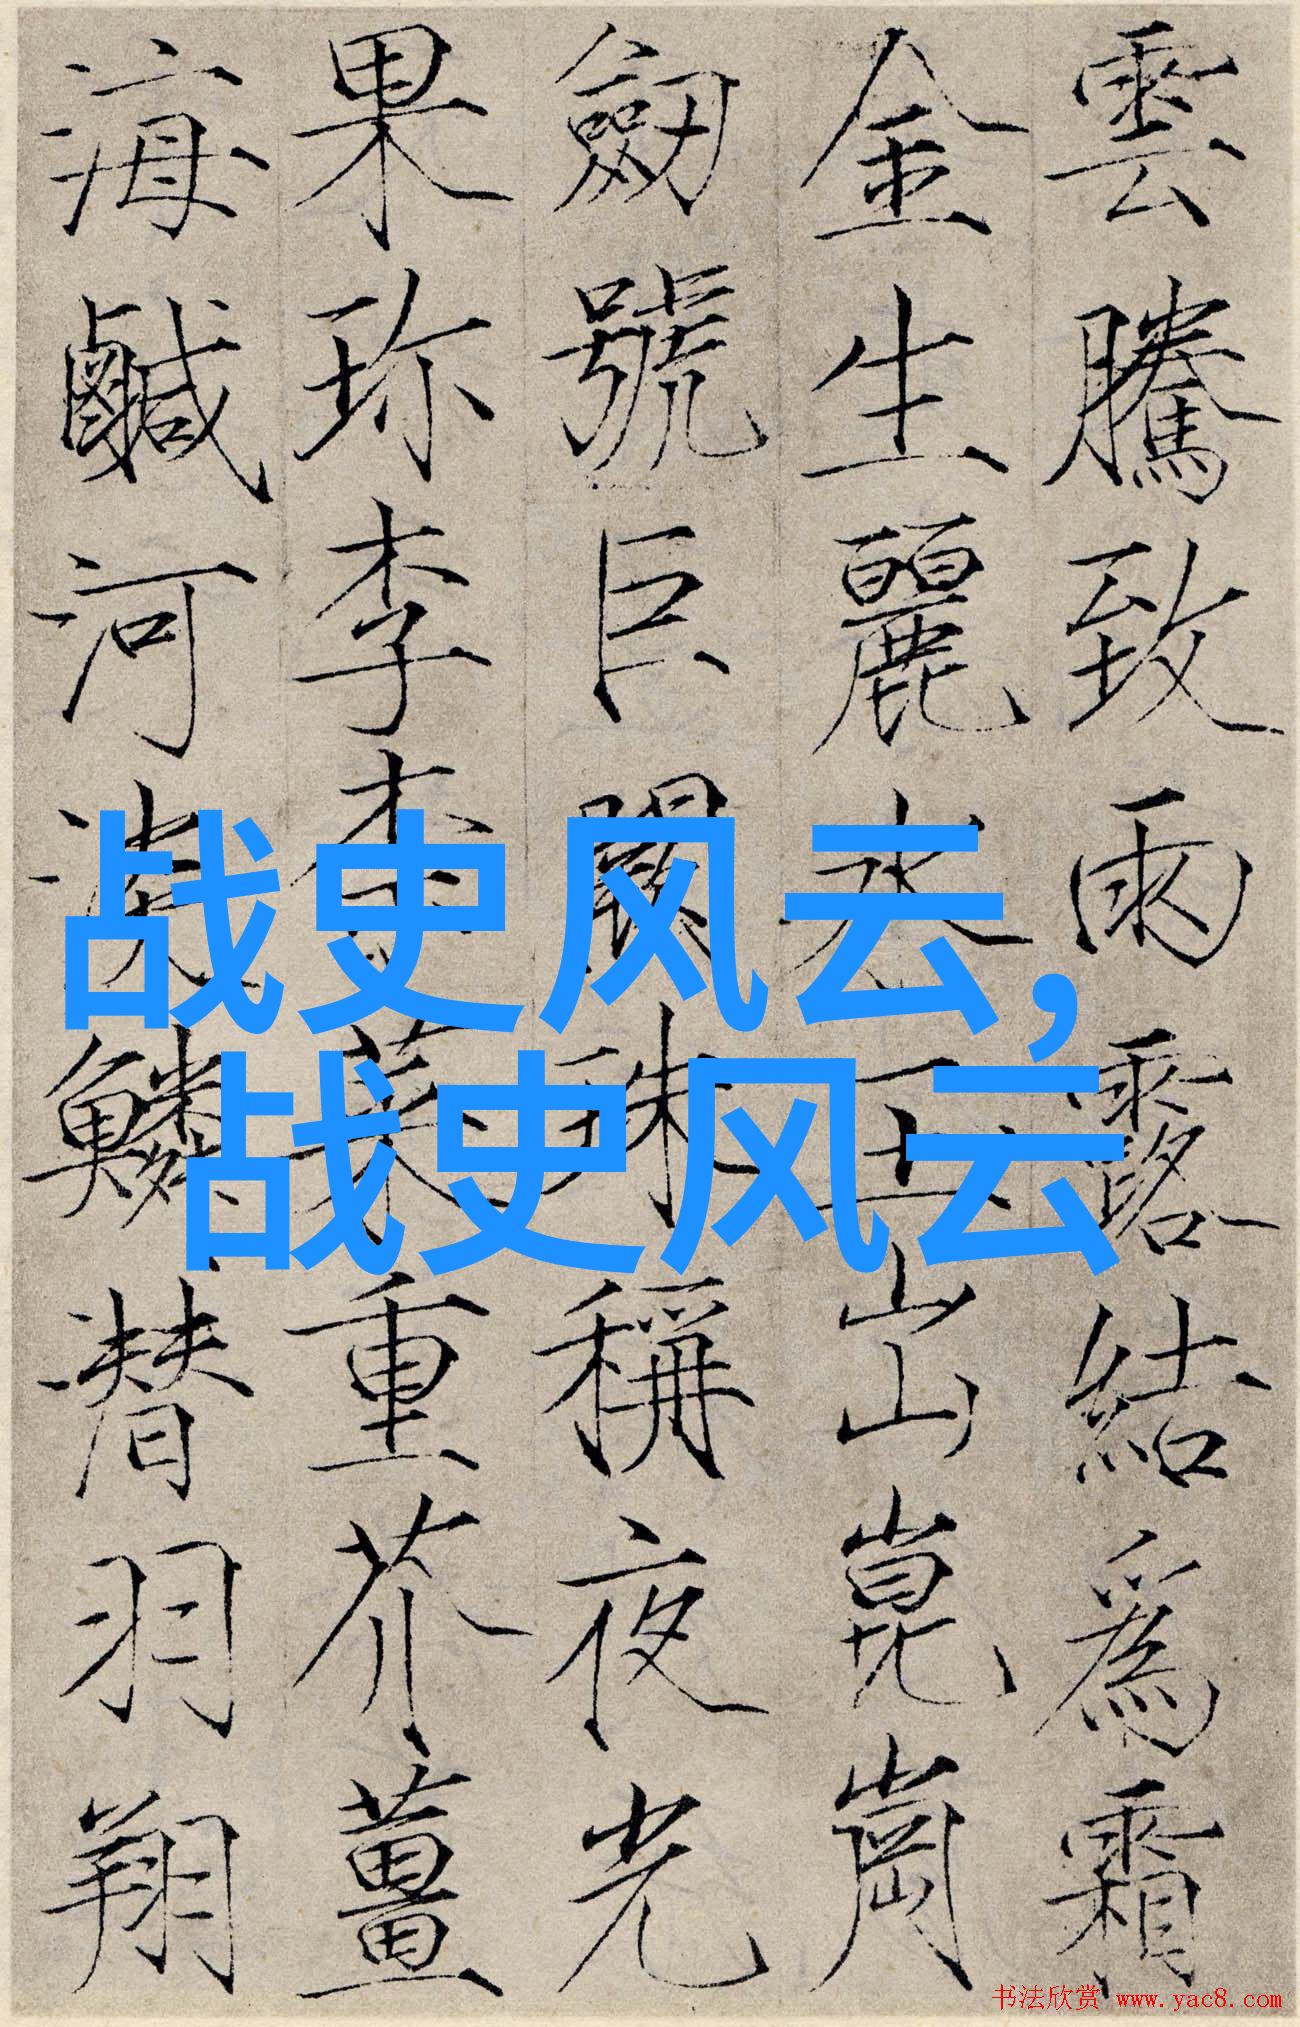 雲騰致雨露結爲霜
金生麗水玉出崑崗
劒號巨闕珠稱夜光
果珎李柰菜重芥薑
海鹹河淡鱗潛羽翔
战史风云，
战史风云
书法欣赏 www.yac8.com